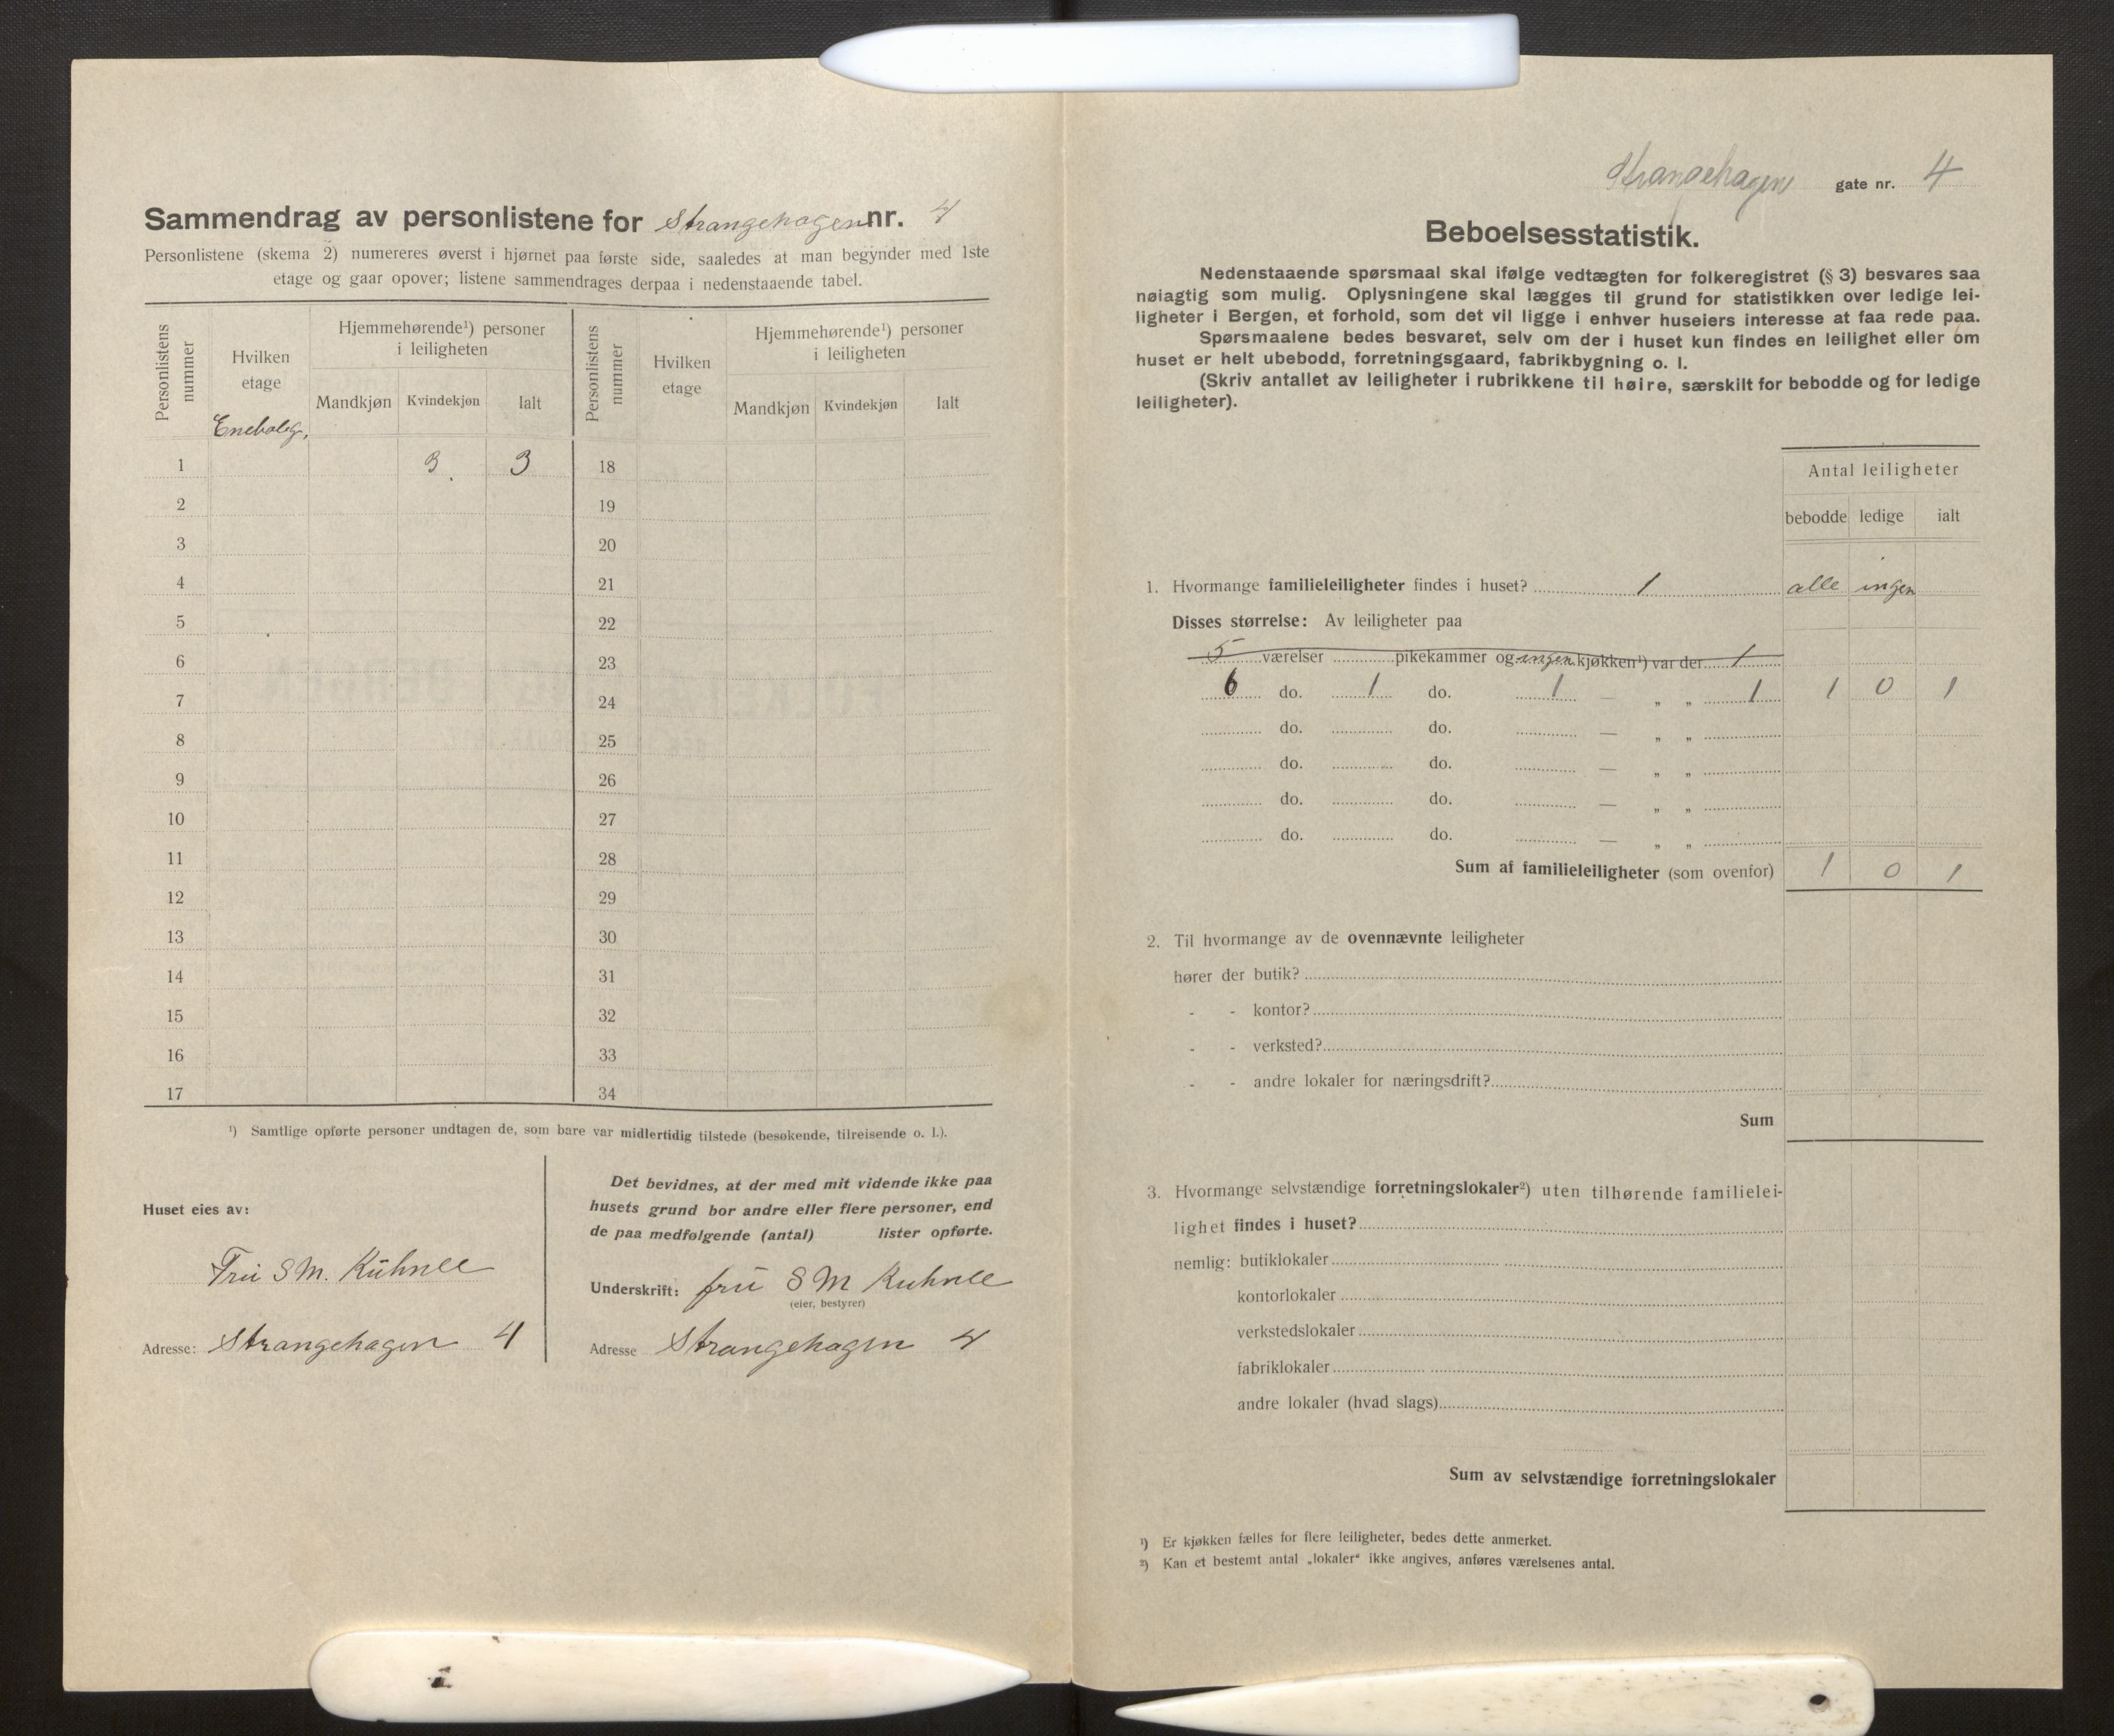 Sammendrag av personlistene for Strangehagen nr. 4
Personlistene (skema 2) numereres øverst i hjørnet paa første side, saaledes at man begynder med 1ste
etage og gaar opover; listene sammendrages derpaa i nedenstaaende tabel.
Personlistens nummer
Hvilken etage
Hjemmehørende¹) personer i leiligheten
Mandkjøn Kvindekjøn Ialt
Personlistens nummer
Hvilken etage
Hjemmehørende¹) personer i leiligheten
Mandkjøn Kvindekjøn Ialt
Enebolig,
1 3 3 18
2 19
3 20
4 21
5 22
6 23
7 24
8 25
9 26
10 27
11 28
12 29
13 30
14 31
15 32
16 33
17 34
¹) Samtlige opførte personer undtagen de, som bare var midlertidig tilstede (besøkende, tilreisende o. l.).
Huset eies av:
Fru S M. Kühnle
Adresse: Strangehagen 4
Det bevidnes, at der med mit vidende ikke paa
husets grund bor andre eller flere personer, end
de paa medfølgende (antal) lister opførte.
Underskrift: fru S M Kuhnle
(eier, bestyrer)
Adresse Strangehagen 4
Strangehagen gate nr. 4
Beboelsesstatistik.
Nedenstaaende spørsmaal skal ifølge vedtægten for folkeregistret (§ 3) besvares saa
nøiagtig som mulig. Oplysningene skal lægges til grund for statistikken over ledige lei-
ligheter i Bergen, et forhold, som det vil ligge i enhver huseiers interesse at faa rede paa.
Spørsmaalene bedes besvaret, selv om der i huset kun findes en leilighet eller om
huset er helt ubebodd, forretningsgaard, fabrikbygning o. l.
(Skriv antallet av leiligheter i rubrikkene til høire, særskilt for bebodde og for ledige
leiligheter).
Antal leiligheter
bebodde ledige ialt
1. Hvormange familieleiligheter findes i huset? 1 alle ingen
Disses størrelse: Av leiligheter paa
5 værelser pikekammer og ingen kjøkken¹) var der 1
6 do. 1 do. 1 — „ „ 1 1 0 1
do. do. — „ „
do. do. — „ „
do. do. — „ „
do. do. — „ „
Sum af familieleiligheter (som ovenfor) 1 0 1
2. Til hvormange av de ovennævnte leiligheter
hører der butik?
- - kontor?
- - verksted?
- - andre lokaler for næringsdrift?
Sum
3. Hvormange selvstændige forretningslokaler²) uten tilhørende familielei-
lighet findes i huset?
nemlig: butiklokaler
kontorlokaler
verkstedslokaler
fabriklokaler
andre lokaler (hvad slags)
Sum av selvstændige forretningslokaler
¹) Er kjøkken fælles for flere leiligheter, bedes dette anmerket.
²) Kan et bestemt antal „lokaler“ ikke angives, anføres værelsenes antal.